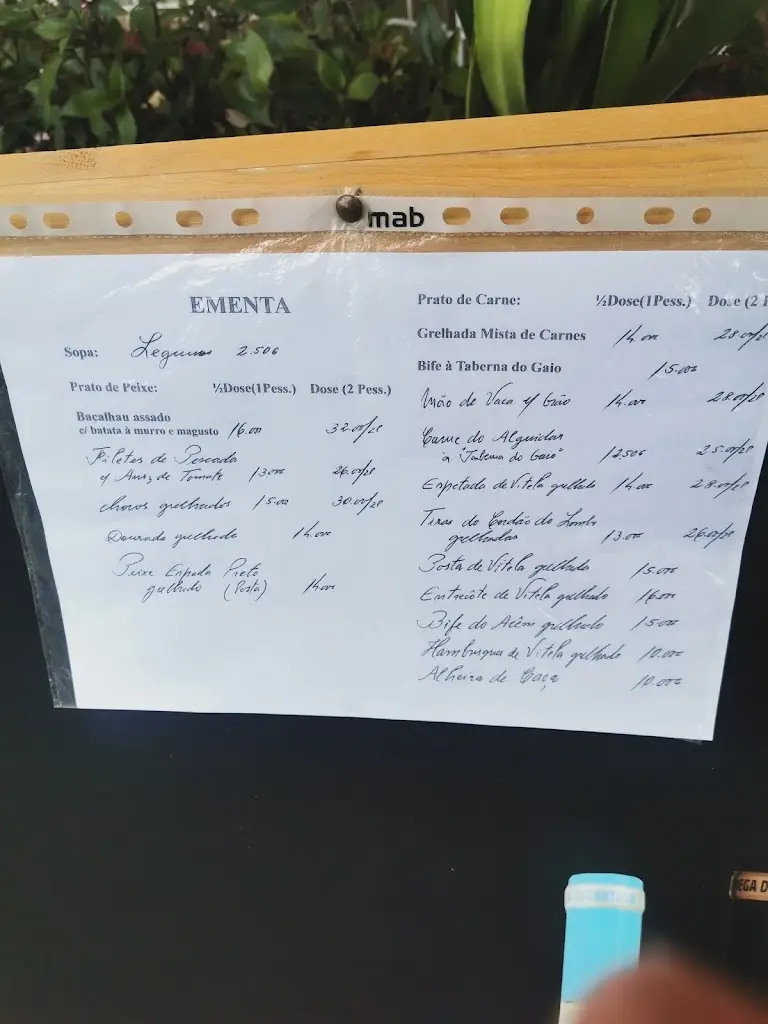 mab
EMENTA
Sopa: Legumes 2.50€
Prato de Peixe: ½Dose(1Pess.) Dose (2 Pess.)
Bacalhau assado
c/ batata à murro e magusto 16.00 32.00/2P
Filetes de Pescada
c/ Arroz de Tomate 13.00€ 26.00/2P
chocos grelhados 15.00 30.00/2P
Dourada grelhada 14.00€
Peixe Espada Preto
grelhado (Posta) 14.00
Prato de Carne: ½Dose(1Pess.) Dose (2 P
Grelhada Mista de Carnes 14.00 28.00/2
Bife à Taberna do Gaio 15.00€
Mão de Vaca c/ Grão 14.00€ 28.00/2P
Carne do Alguidar
à "Taberna do Gaio" 12.50€ 25.00/2P
Espetada de Vitela grelhada 14.00 28.00/2P
Tiras do Cordão do Lombo
grelhadas 13.00 26.00/2P
Posta de Vitela grelhada 15.00€
Entrecote de Vitela grelhado 16.00
Bife do Acém grelhado 15.00€
Hamburgue de Vitela grelhado 10.00€
Alheira de Caça 10.00€
EGA D